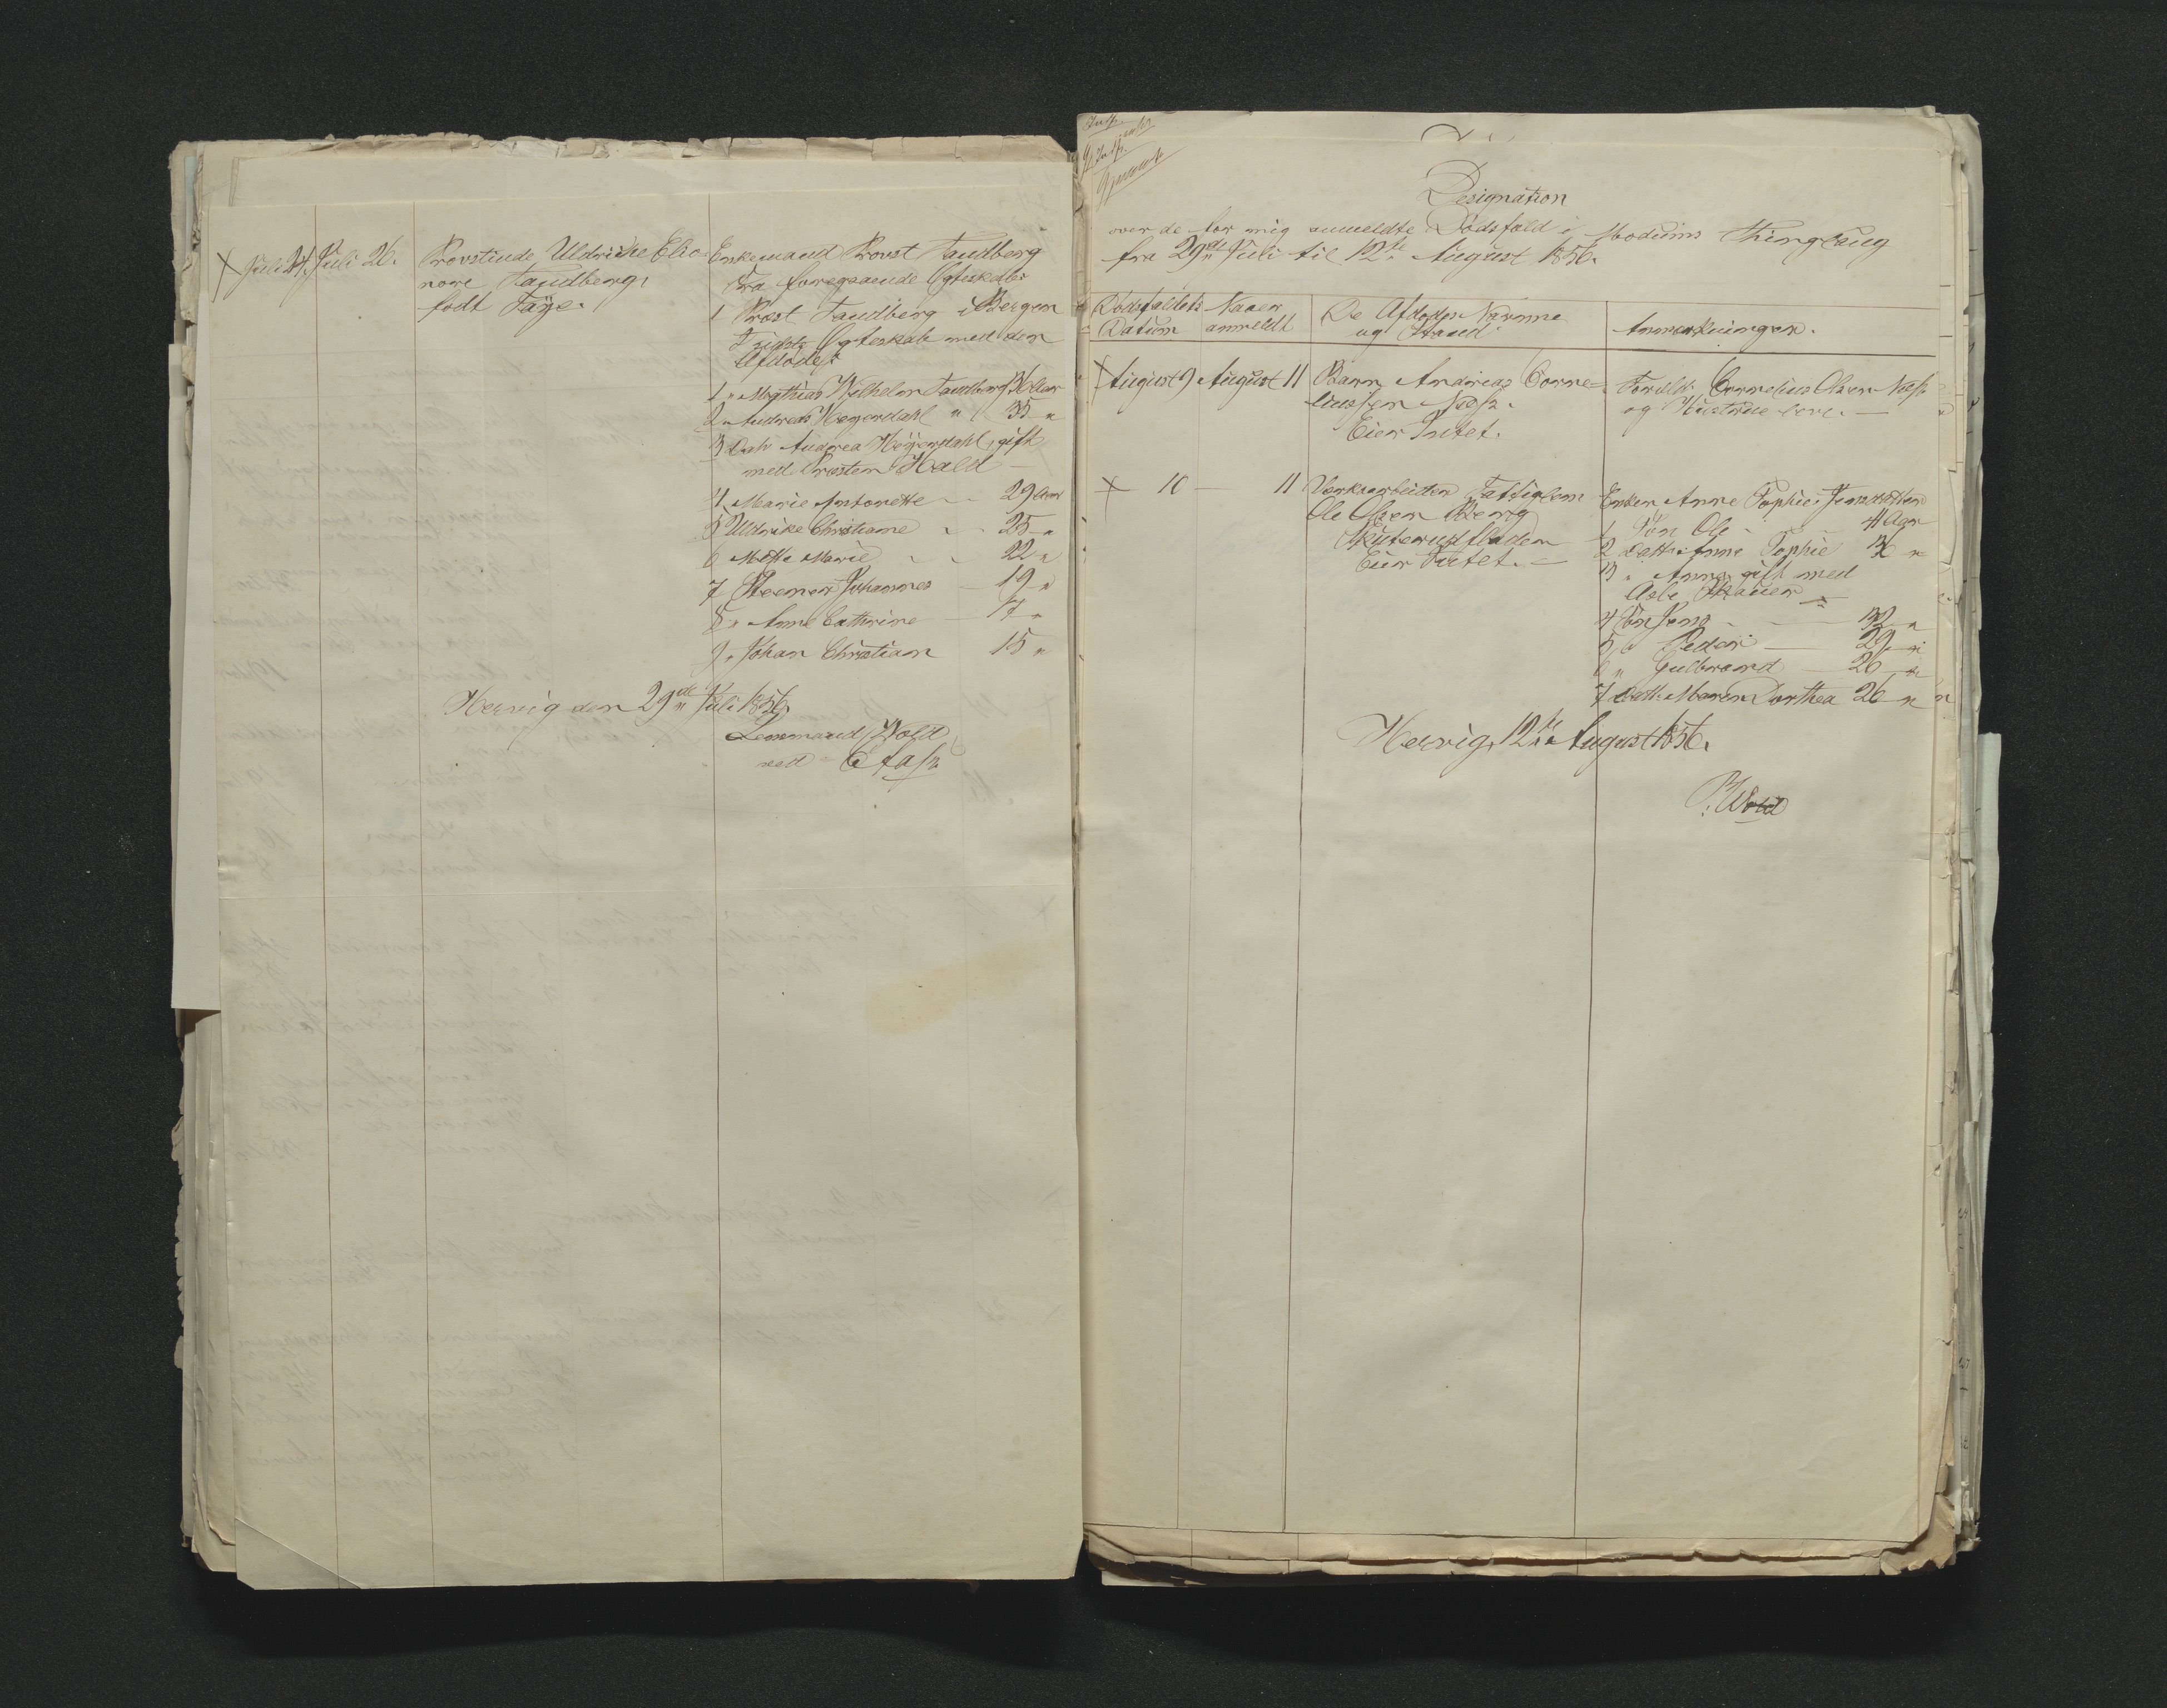 Juli 24. Juli 26. Provstinde Uldrikke Eleo-
nore Tandberg,
født Faÿe.
Enkemand Provst Tandberg
Fra foregaaende Ægteskab:
1 Præst Tandberg i Bergen
I sidste Ægteskab med den
Afdøde:
1 „ Mathias Wilhelm Tandberg 36 Aar
2 „ Andreas Heÿerdahl „ 35 „
3 Datt Andrea Heÿerdahl, gift
med Præsten Hald
4 „ Marie Antonette 29 Aar
5 Uldrikke Christiane 25 „
6 Mette Marie 22 „
7 Johannes 19 „
8 „ Anne Cathrine 17 „
9 „ Johan Christian 15 „
Hervig den 29de Juli 1856.
Lensmand Wold
ved
Designation
over de for mig anmeldte Dødsfald i Modums Thinglaug
fra 29de Juli til 12te August 1856.
Dødsfaldets
Datum
Naar
anmeldt
De Afdødes Navne
og Stand
Anmærkninger.
August 9 August 11 Barn Andreas Corne-
liussen Næss.
Eier Intet.
Forældr. Cornelius Olsen Næss
og Hustrue leve. —
10 — 11 Værksarbeider Fattiglem
Ole Olsen Berg
Eier Intet. —
Enken Anne Sophie Jensdatter
1 Søn Ole 41 Aar
2 Datt. Anne Sophie 36 „
3 „ Anne, gift med
4 Søn Jens 32 „
5 „ Peder 29 „
6 „ Gulbrand 26 „
7 Datt. Maren Dorthea 26 „
Hervig, 12te August 1856.
P. Wold